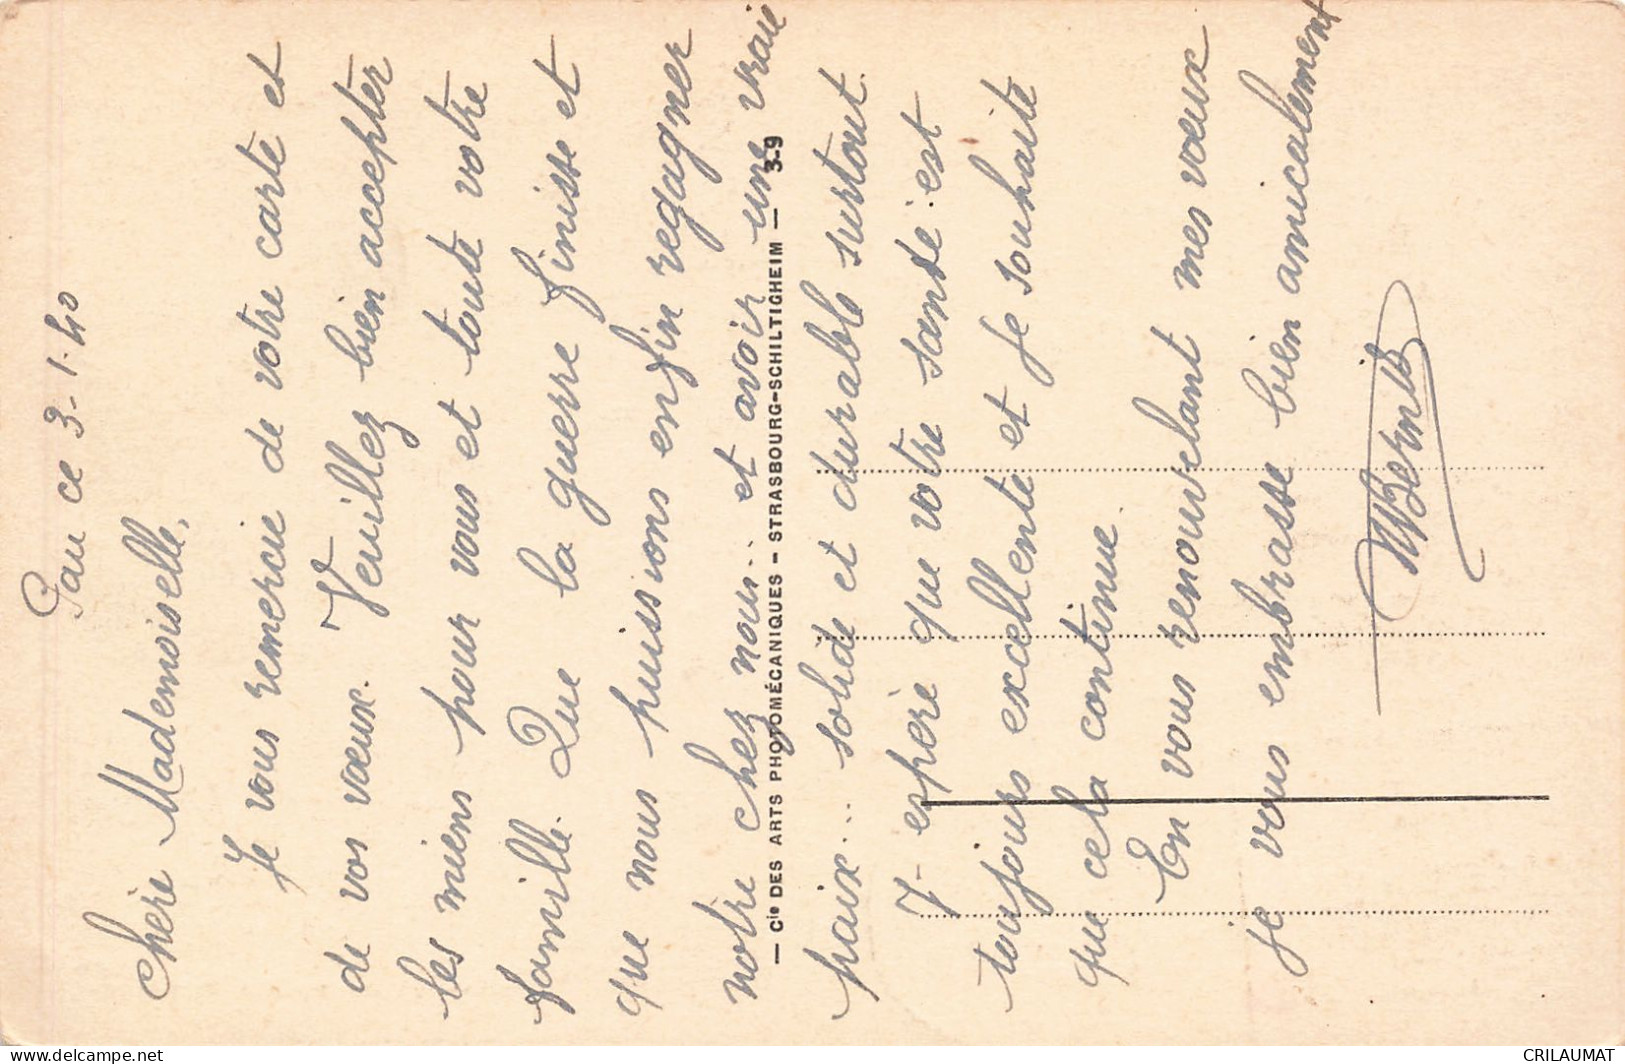 Pau ce 3-1-40
Chère Mademoiselle,
Je vous remercie de votre carte et
de vos vœux. Veuillez bien accepter
les miens pour vous et toute votre
famille. Que la guerre finisse et
que nous puissions enfin regagner
notre chez nous.. et avoir une vraie
paix... solide et durable surtout.
J'espère que votre santé est
toujours excellente et je souhaite
que cela continue.
En vous renouvelant mes vœux
je vous embrasse bien amicalement
— Cie DES ARTS PHOTOMÉCANIQUES – STRASBOURG-SCHILTIGHEIM — 3-9
delcampe.net
CRILAUMAT